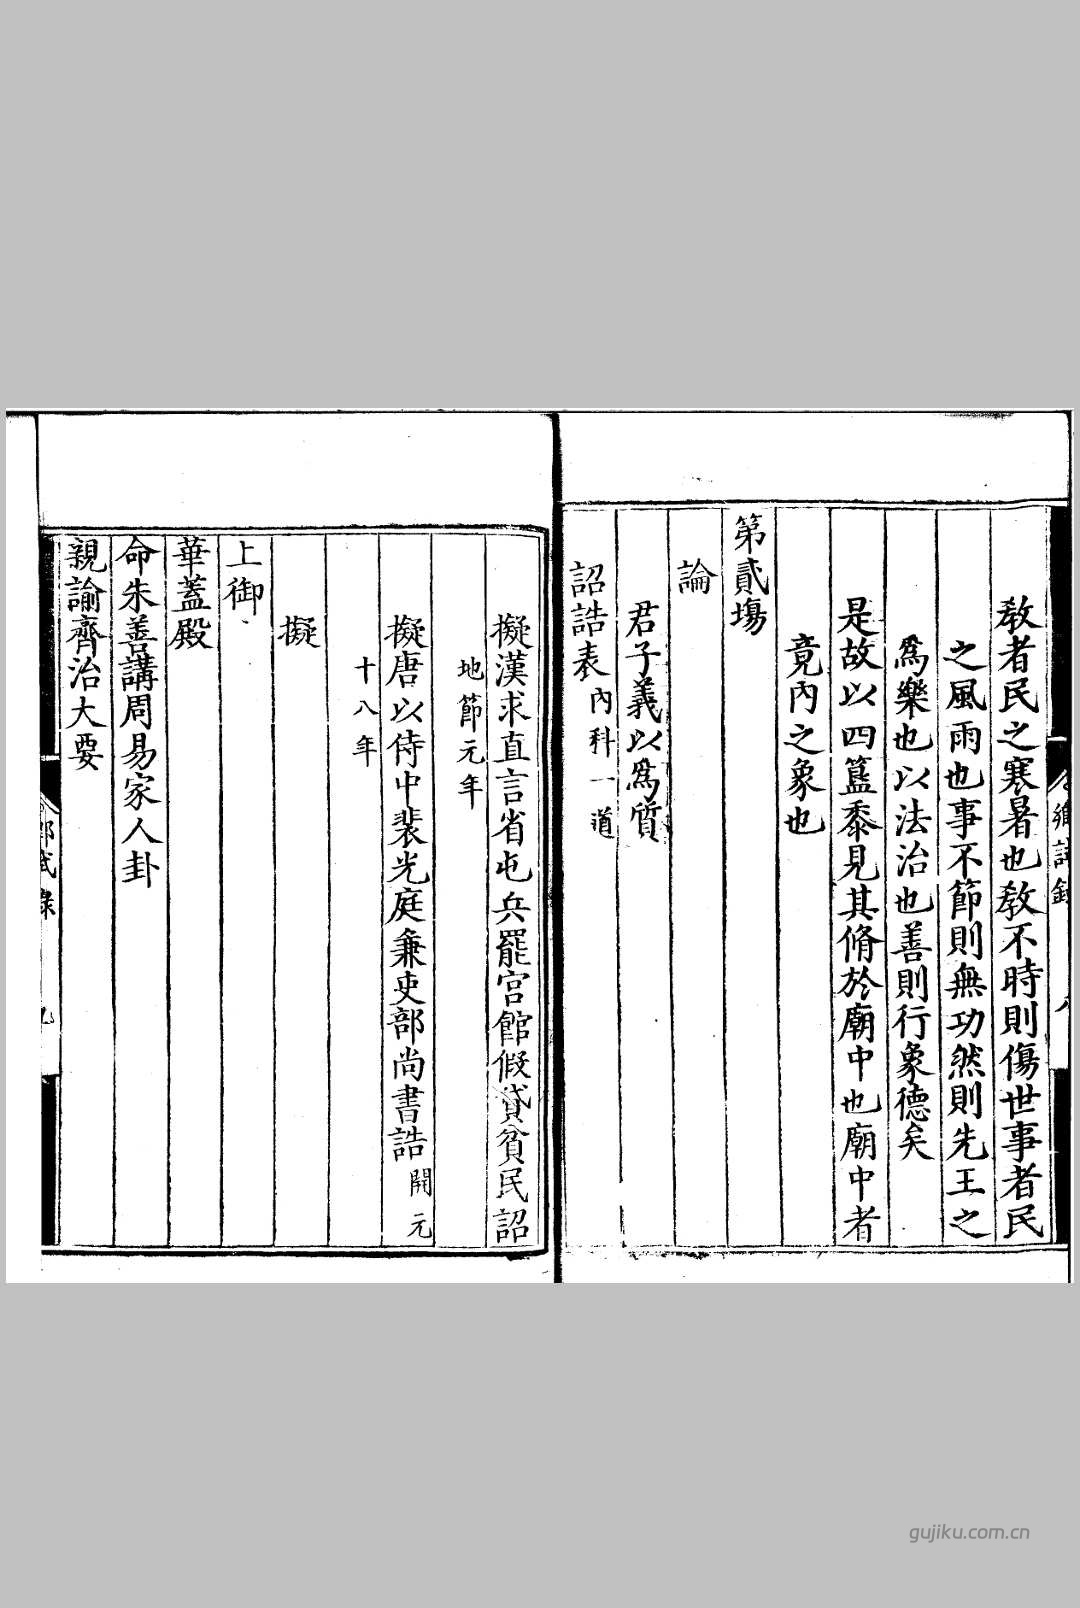 教者民之寒暑也教不時則傷世事者民
之風雨也事不節則無功然則先王之
爲樂也以法治也善則行象德矣
是故以四簋黍見其脩於廟中也廟中者
竟內之象也
第貳塲
論
君子義以爲質
詔誥表內科一道
擬漢求直言省屯兵罷宮館假貸貧民詔
地節元年
擬唐以侍中裴光庭兼吏部尚書誥開元
十八年
擬
上御
華蓋殿
命朱善講周易家人卦
親諭齊治大要
鄉試錄
gujiku.com.cn